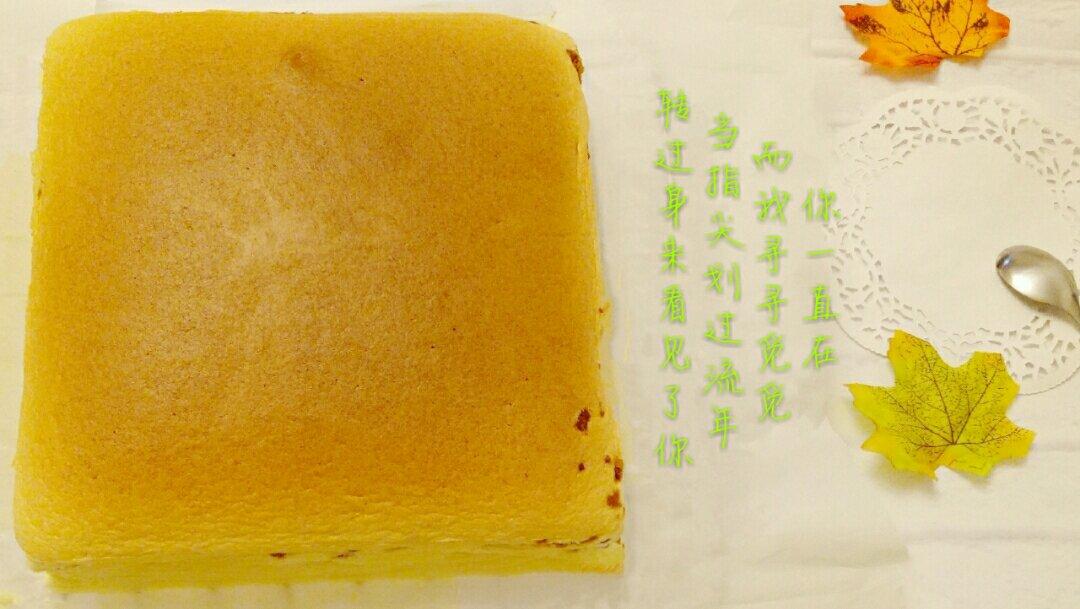 你一直在
而我寻寻觅觅
当指尖划过流年
转过身来看见了你